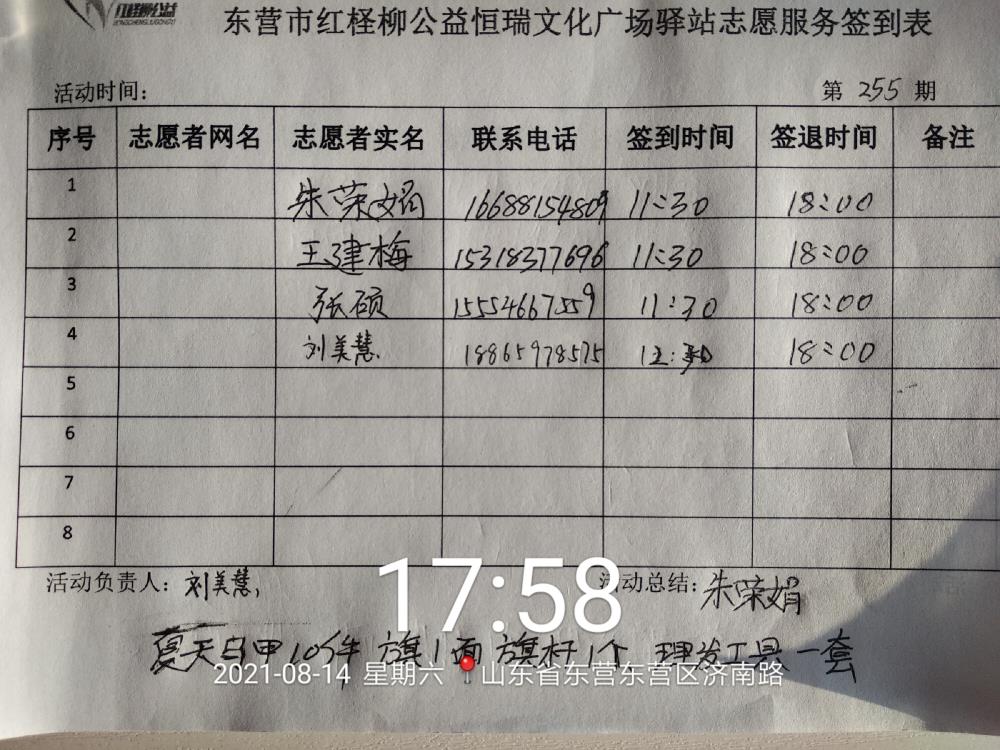 红柽柳公益
东营市红柽柳公益恒瑞文化广场驿站志愿服务签到表
活动时间： 第 255 期
序号 志愿者网名 志愿者实名 联系电话 签到时间 签退时间 备注
1 朱荣娟 16688154809 11:30 18:00
2 王建梅 15318377696 11:30 18:00
3 张硕 15554667559 11:30 18:00
4 刘美慧 18865978575 18:00
5
6
7
8
活动负责人：刘美慧 活动总结：朱荣娟
17:58
夏天马甲10件 旗1面 旗杆1个 理发工具一套
2021-08-14 星期六 山东省东营东营区济南路